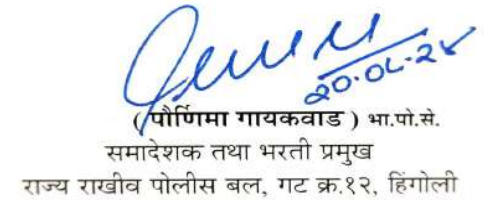 20.06.24
( पौर्णिमा गायकवाड ) भा.पो.से.
समादेशक तथा भरती प्रमुख
राज्य राखीव पोलीस बल, गट क्र.१२, हिंगोली